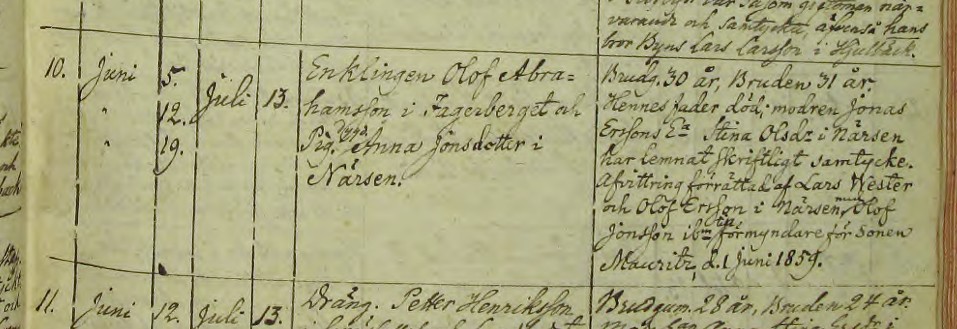 varande och samtyckt, äfvenså hans
bror Lars Larsson i
10. Juni 5. Juli 13. Enklingen Olof Abra=
" 12. hamsson i Fagerberget och
" 19. Pig. Anna Jonsdotter i
Närsen.
Brudg. 30 år, Bruden 31 år.
Hennes fader död; modren Jonas
Erssons Ea Stina Olsdr i Närsen
har lemnat skriftligt samtycke.
Afvittring förrättad af Lars Wester
och Olof Ersson i Närsen, Olof
Jonsson ibm till förmyndare för sonen
Mauritz, d. 1 Juni 1859.
11. Juni 12. Juli 13. Dräng. Petter Henriksson
Brudgum. 28 år, Bruden 24 år.